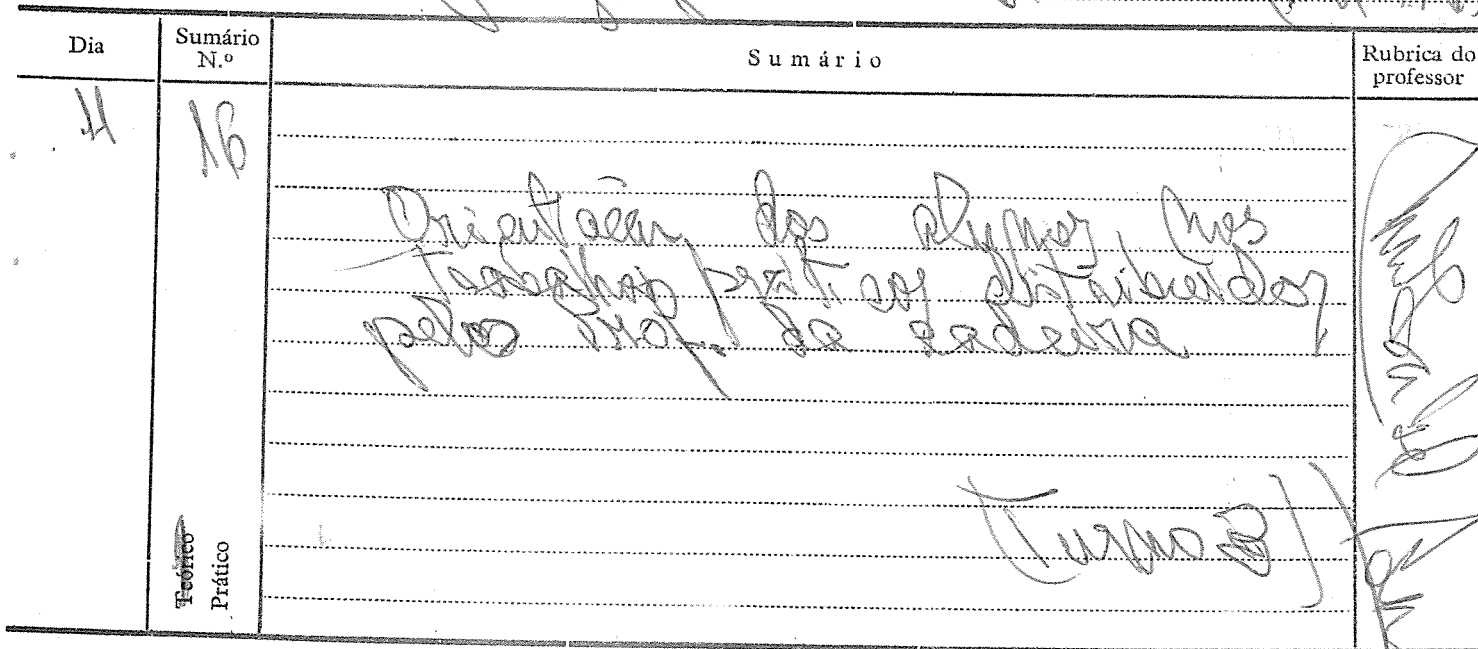 Dia
Sumário N.º
Sumário
Rubrica do professor
11
16
Orientação dos alunos, nos
trabalhos práticos distribuidos
pelo Prof. da cadeira
(Turma B)
Teórico
Prático